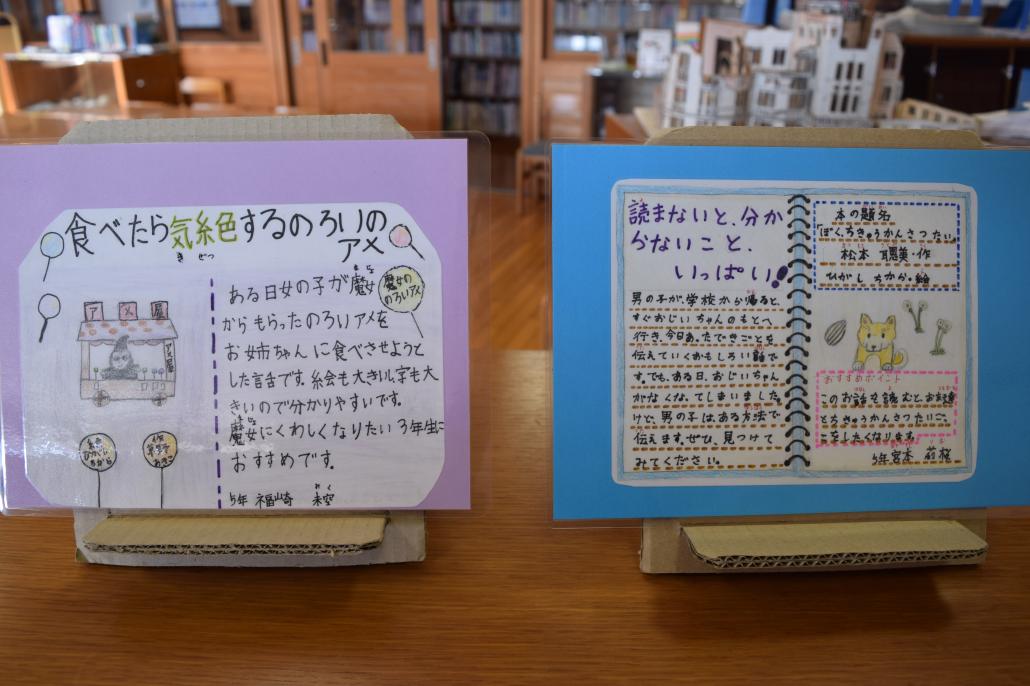 食べたら気絶するのろいの
アメ
きぜつ
アメ屋
アメ屋
魔女の
のろいアメ
ある日女の子が魔女
まじょ
からもらったのろいアメを
お姉ちゃんに食べさせようと
した言舌です。絵も大きいし、字も大
きいので分かりやすいです。
魔女にくわしくなりたい3年生に
まじょ
おすすめです。
5年 福崎 未空
みく
絵
ひがし
ちから
作
草野
あきこ
読まないと、分か
らないこと、
いっぱい!
男の子が、学校から帰ると、
すぐおじいちゃんのもとへ
行き、今日あったできごとを
伝えていくおもしろい話で
す。でも、ある日、おじいちゃん
がなくなってしまいました。
けど、男の子は、ある方法で
伝えます。ぜひ、見つけて
みてください。
本の題名
「ぼく、ちきゅうかんさつたい」
松本 聰美・作
ひがし ちから・絵
おすすめポイント
このお話を読むと、お友達
とちきゅうかんさつたいご
こをしたくなります
5年 宮本